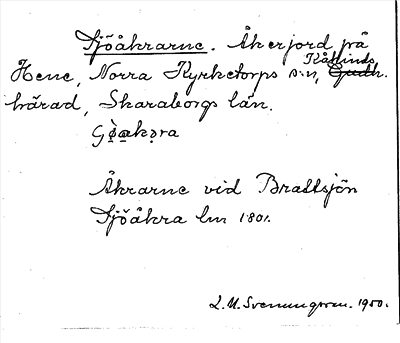 Sjöåkrarne. Åkerjord på
Hene, Norra Kyrketorps s:n, Kåkinds
härad, Skaraborgs län.
Åkrarne vid Brattsjön
Sjöåkra lm 1801.
L. M. Svenungsson. 1950.